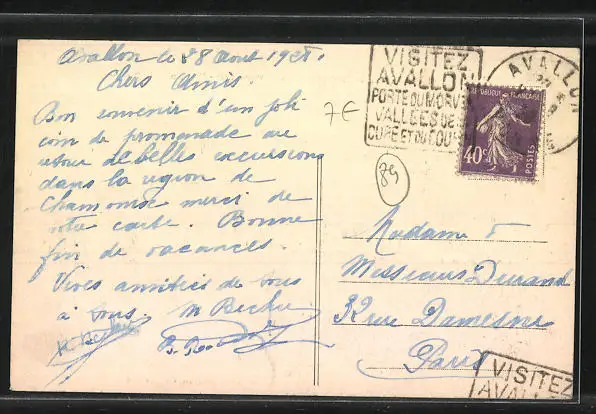 Avallon le 28 Aout 1928.
Chers Amis.
Bon souvenir d'un joli
coin de promenade au
retour de belles excursions
dans la région de
Chamonix merci de
votre carte. Bonne
fin de vacances.
Vives amitiés de tous
à tous. M Bechu
7E
89
VISITEZ
AVALLON
PORTE DU MORVAN
VALLÉES DE
CURE ET DU COUSIN
AVALLON
REPUBLIQUE FRANÇAISE
40c
POSTES
Madame &
Messieurs Durand
32 rue Damesme
Paris
VISITEZ
AVALLON